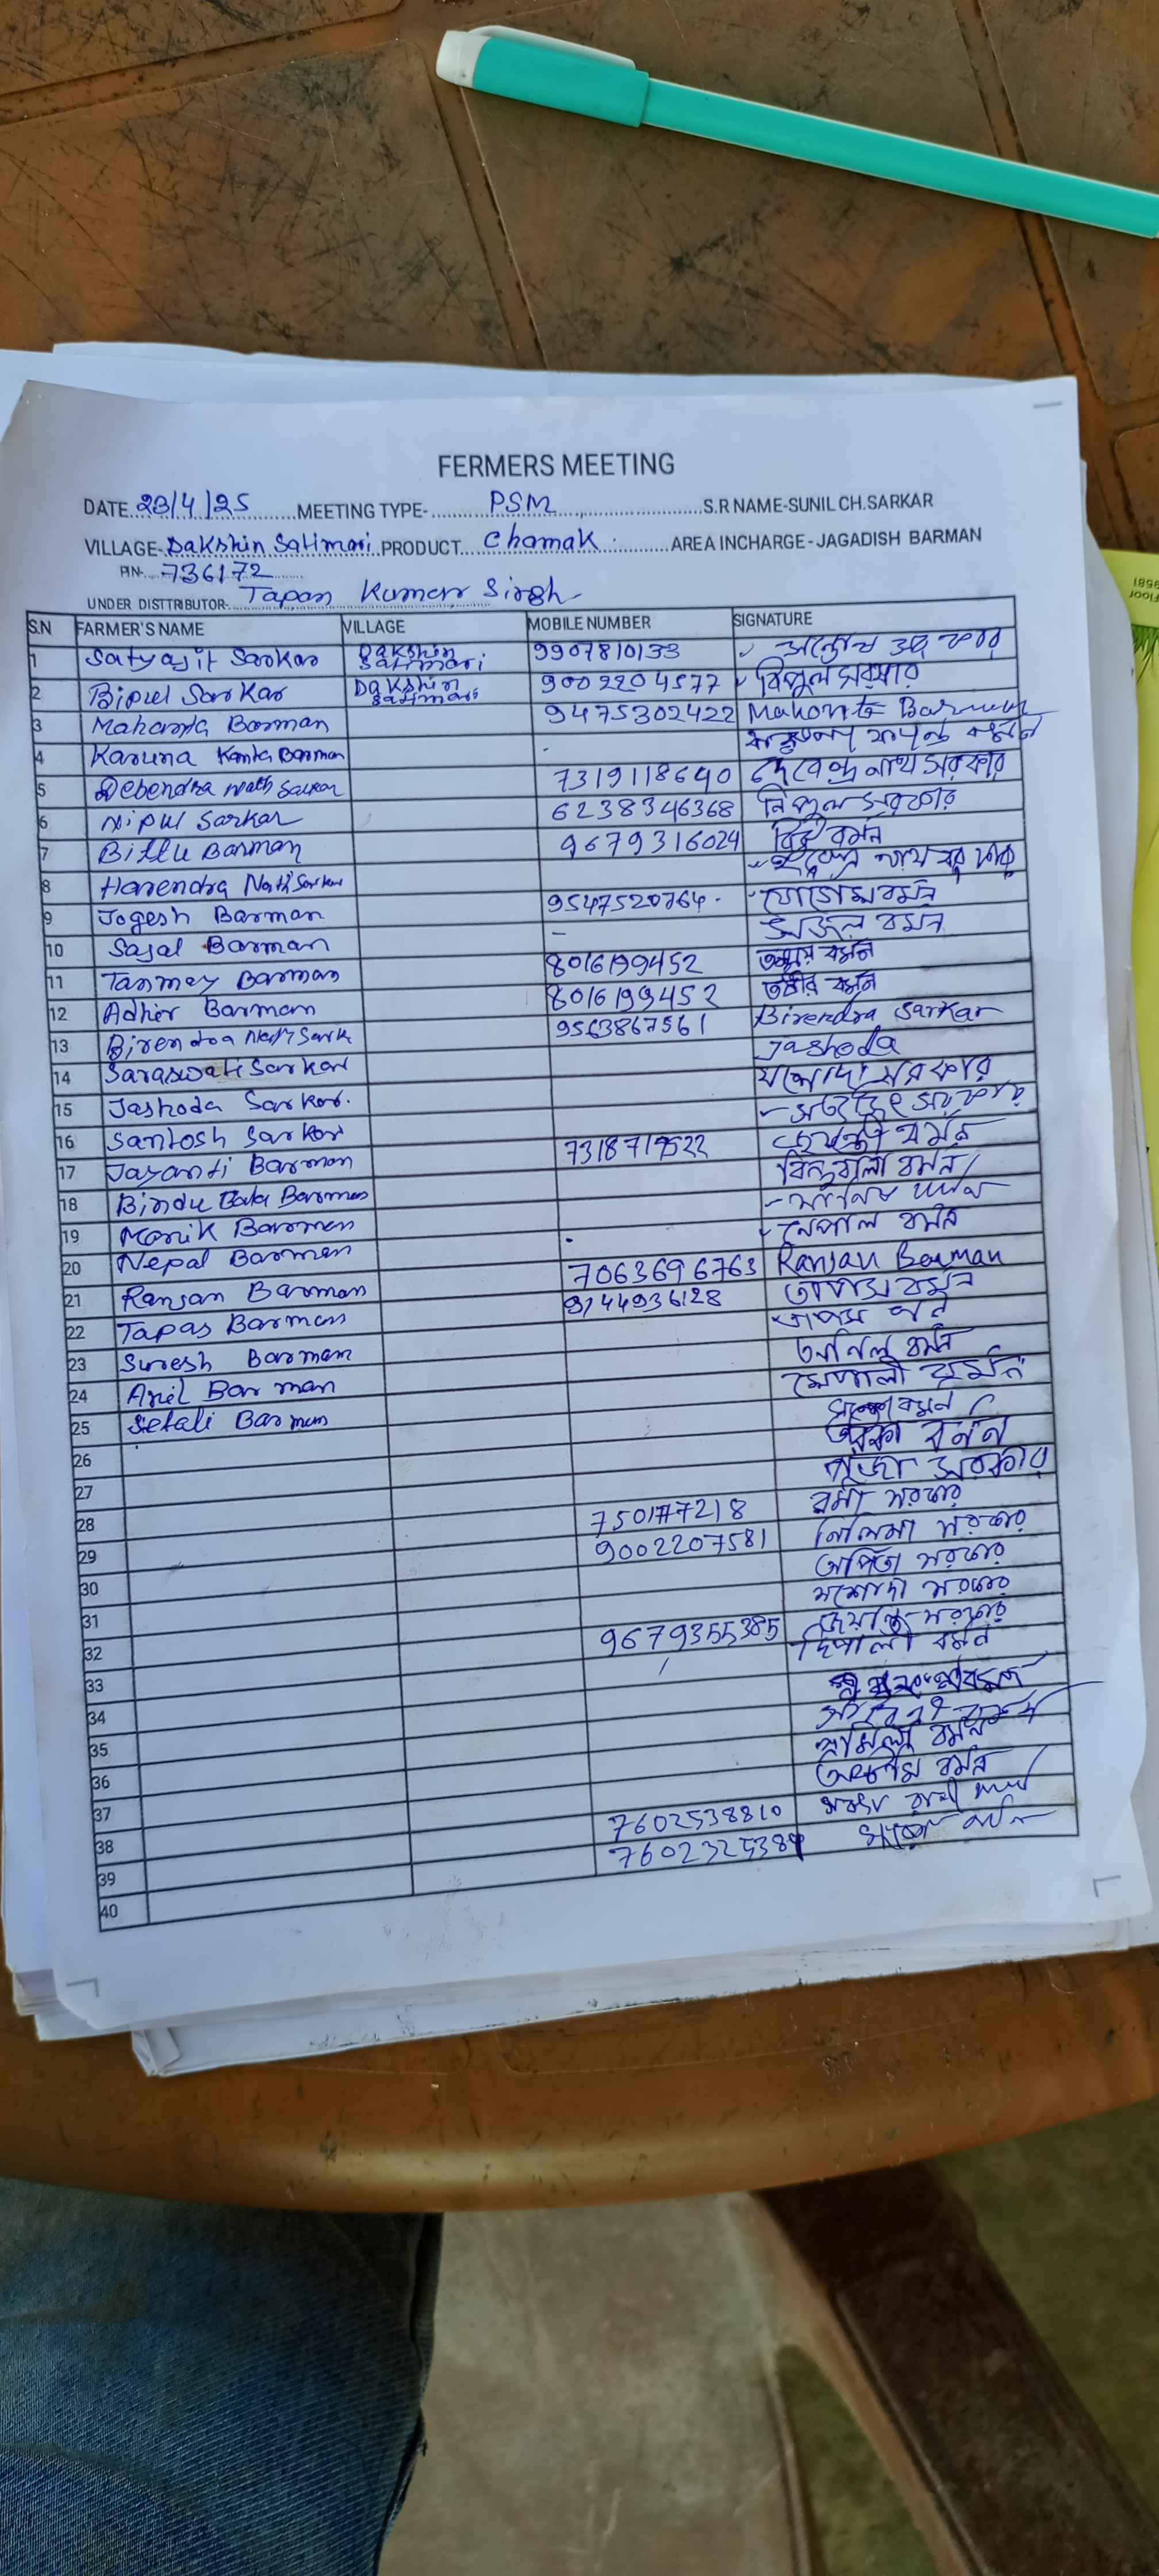 FERMERS MEETING
DATE 23/4/25 MEETING TYPE- PSM S.R NAME-SUNIL CH.SARKAR
VILLAGE- Dakshin Satimari PRODUCT Chamak AREA INCHARGE - JAGADISH BARMAN
PIN- 736172
UNDER DISTTRIBUTOR- Tapan Kumar Singh
S.N FARMER'S NAME VILLAGE MOBILE NUMBER SIGNATURE
1 Satyajit Sarkar Dakshin Satimari 9907810133
2 Bipul Sarkar Dakshin Satimari 9002204577 বিপুল সরকার
3 Mahanta Barman 9475302422 Mahonta Barman
4 Karuna Kanta Barman
5 Debendra nath Sarkar 7319118640 দেবেন্দ্র নাথ সরকার
6 Nipul Sarkar 6238346368 নিপুল সরকার
7 Bittu Barman 9679316024 বিট্টু বর্মন
8 Harendra Nath Sarkar
9 Jogesh Barman 9547520764 যোগেশ বর্মন
10 Sajal Barman – সজল বর্মন
11 Tanmey Barman 8016199452 তন্ময় বর্মন
12 Adhir Barman 8016199452 অধীর বর্মন
13 Birendra Nath Sark 9563867561 Birendra Sarkar
14 Saraswati Sarkar Jashoda
15 Jashoda Sarkar. যশোদা সরকার
16 Santosh Sarkar
17 Jayanti Barman 7318719522 জয়ন্তী বর্মন
18 Bindu Bala Barman বিন্দুবালা বর্মন
19 Manik Barman মানিক বর্মন
20 Nepal Barman নেপাল বর্মন
21 Ranjan Barman 7063696763 Ranjan Barman
22 Tapas Barman 9744936128 তাপস বর্মন
23 Suresh Barman
24 Anil Barman অনিল বর্মন
25 Sefali Barman সেফালী বর্মন
26 বর্মন
27 বর্মন
28 পূজা সরকার
29 7501777218 রমা সরকার
30 9002207581 নিলিমা সরকার
31 অর্পিতা সরকার
32 যশোদা সরকার
33 9679355385 জয়ন্তি সরকার
দিপালী বর্মন
34
35
36 বর্মন
37 বর্মন
38 7602538810
39 7602325384
40